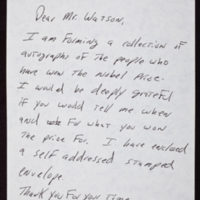 Dear Mr. Watson,
I am forming a collection of
autographs of the people who
have won the Nobel Prize.
I would be deeply grateful
if you would tell me when
and what you won
the prize for. I have enclosed
a self addressed stamped
envelope.
Thank you for your time